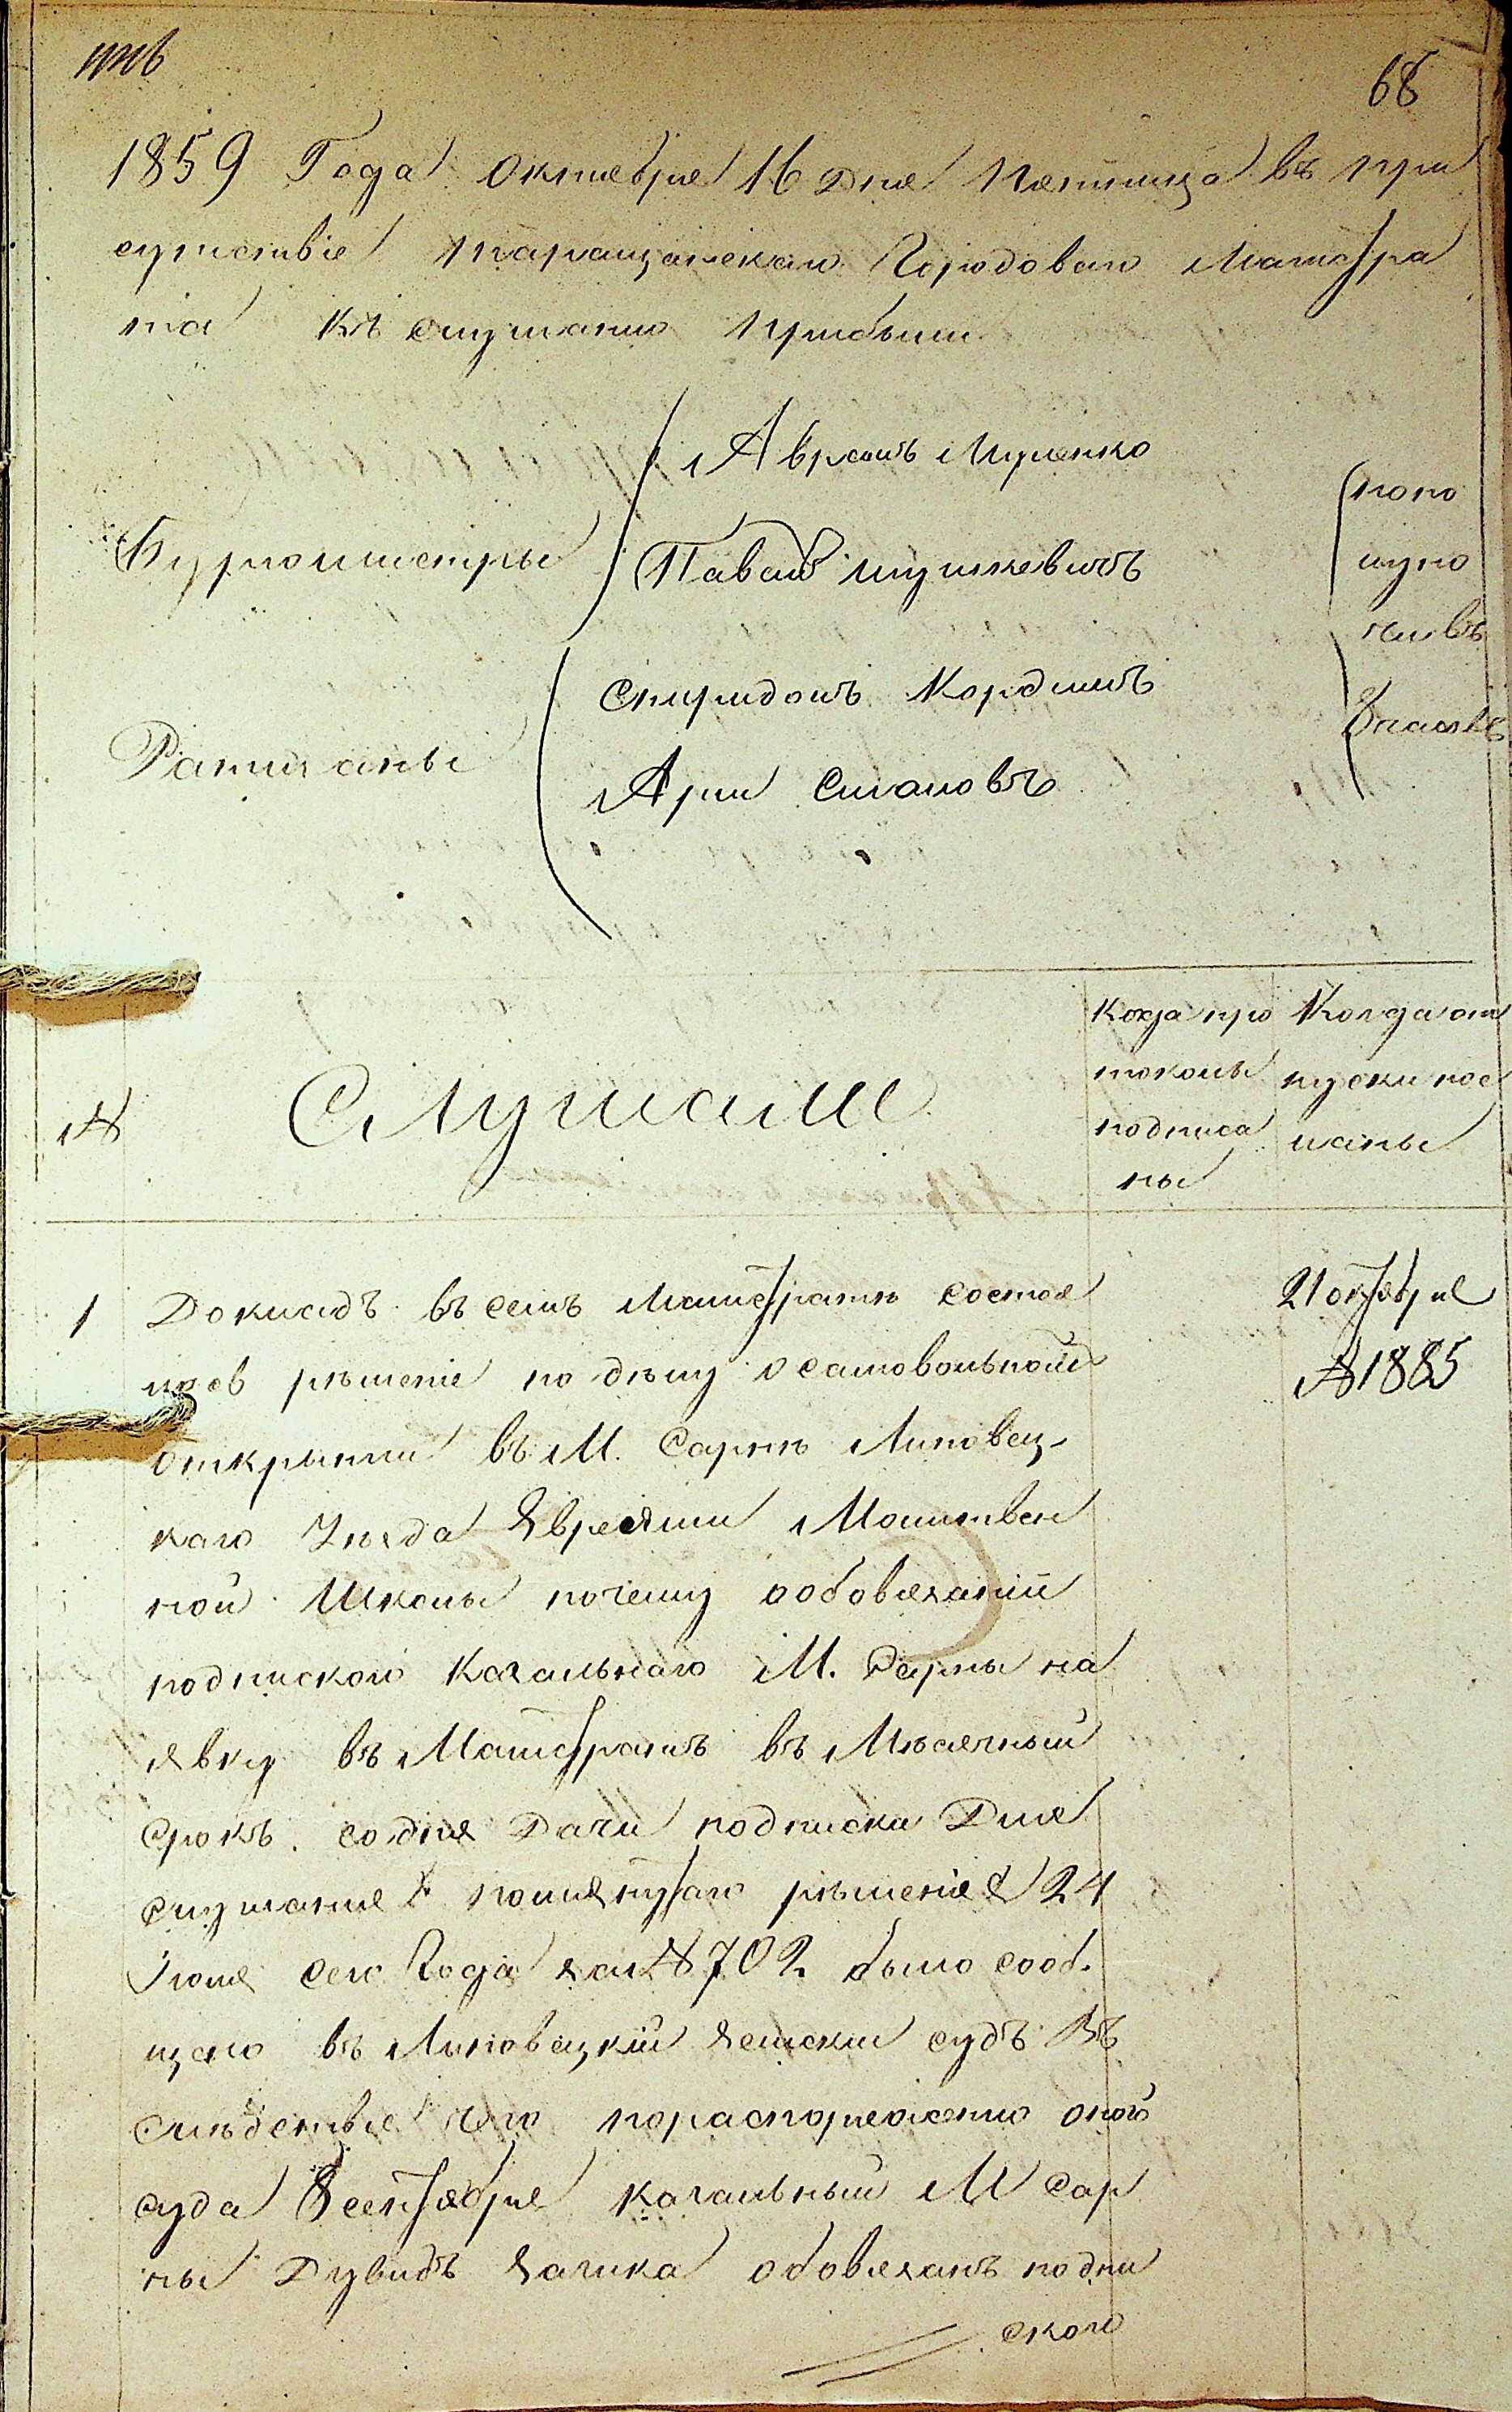 68
1859 Года Октября 16 Дня Пятница въ при
сутствіе Таращанскаго Городоваго Магистра
та къ слушанию прибыли
Аврамъ
Бургомистры
Павелъ
пополу
ночи въ
Спиридонъ Кордишъ
часовъ
Ратманы
Арии Смановъ
№
Слушали
Когда про
токолы
подписа
ны
Когда от
пуски пос
ланы
1
Докладъ въ семъ Магистратѣ состоя
лось рѣшеніе по дѣлу о самовольномъ
открытии въ М. Сарнѣ Липовец
каго Уѣзда Евреями Молитвен
ной Школы почему о обовязаніи
подпискою Кагальнаго М. Сарны на
явку въ Магистратъ въ Мѣсячный
срокъ со дня Дачи подписки Для
слушания помянутаго рѣшенія 24
Июня сего Года за № 702 было сооб
щено въ Липовецкій Земский судъ Въ
слѣдствіе чего по распоряжению оного
суда 8 сентября Кагальный М Сар
ны Дувидъ Загика обовязанъ подпи
скою
21 октября
№ 1885